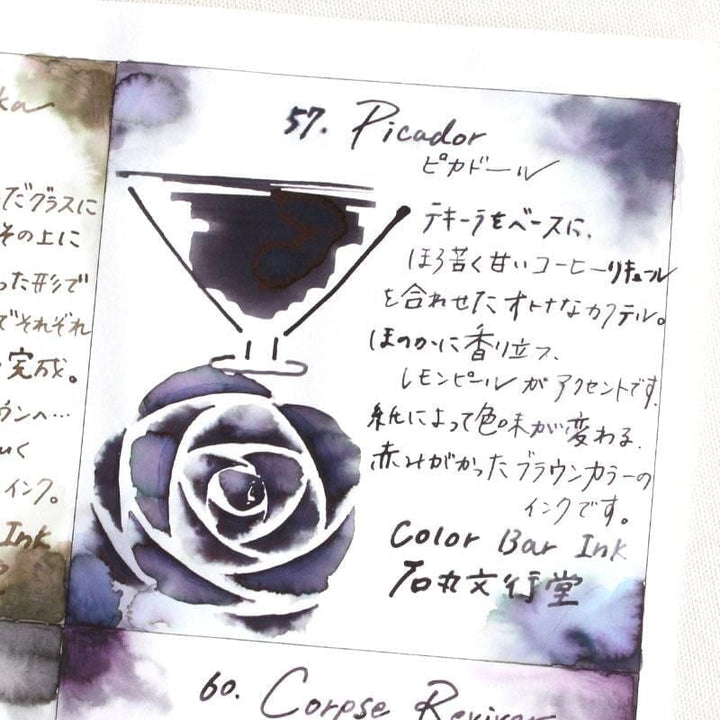 ka
だグラスに
その上に
った形で
でそれぞれ
完成。
ウンへ…
いく
インク。
Ink
57. Picador
ピカドール
テキーラをベースに、
ほろ苦く甘いコーヒーリキュール
を合わせたオトナなカクテル。
ほのかに香り立つ、
レモンピールがアクセントです。
紙によって色味が変わる、
赤みがかったブラウンカラーの
インクです。
Color Bar Ink
石丸文行堂
60. Corpse Reviver